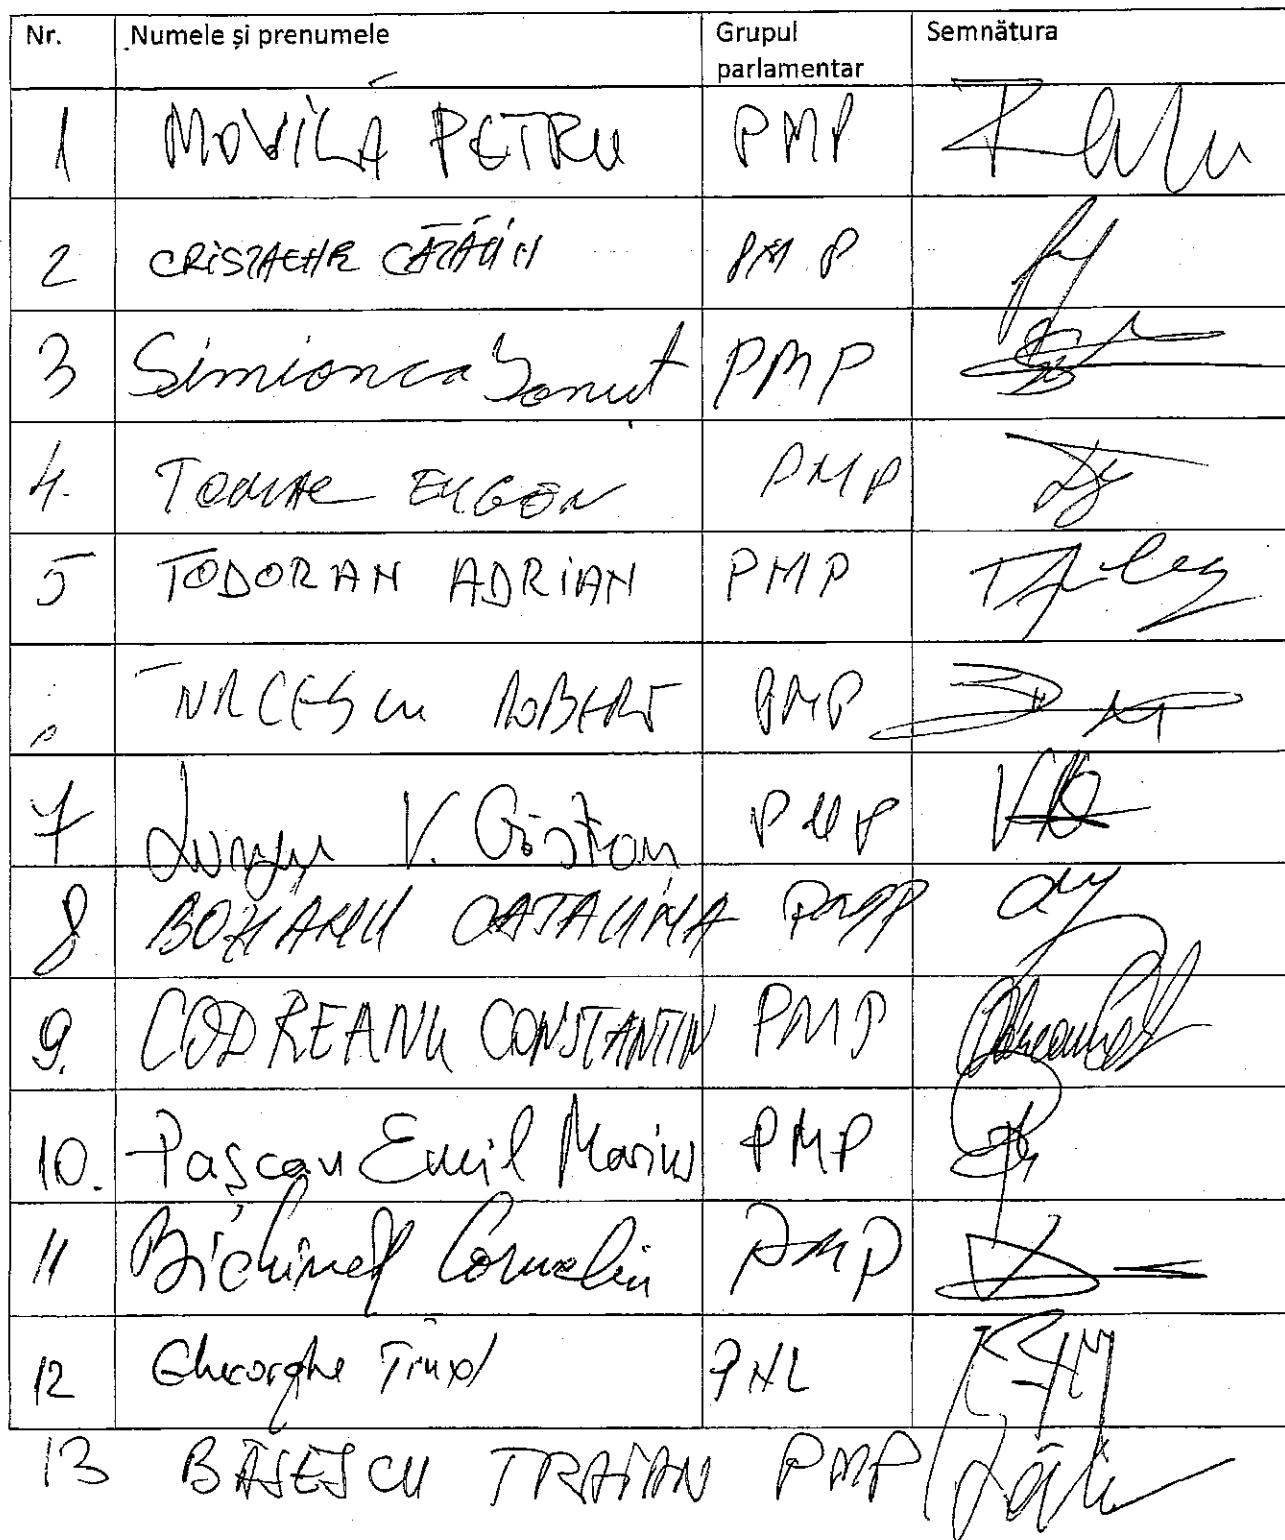 Nr. Numele și prenumele Grupul parlamentar Semnătura
1 MOVILĂ PETRU PMP
2 CRISTACHE CĂTĂLIN PMP
3 Simionca Ionut PMP
4. TOMAC EUGEN PMP
5 TODORAN ADRIAN PMP
TURCESCU ROBERT PMP
7 Lungu V. Cristian PMP
8 BOZIANU CATALINA PMP
9. CODREANU CONSTANTIN PMP
10. Pașcan Emil Marius PMP
11 Bichineț Corneliu PMP
12 Gheorghe Tinel PNL
13 BĂSESCU TRAIAN PMP